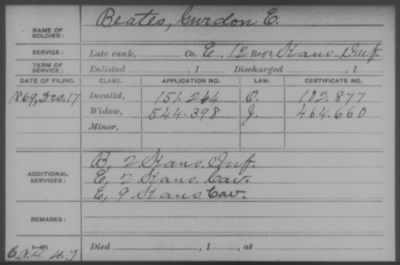 NAME OF SOLDIER: Beates, Gurdon E.
SERVICE: Late rank, Co. E, 12 Reg't Kans. Inf.
TERM OF SERVICE: Enlisted , 1 Discharged , 1
DATE OF FILING. CLASS. APPLICATION NO. LAW. CERTIFICATE NO.
1869, Dec. 17 Invalid, 151.244 O. 102.877
Widow, 544.398 J. 464.660
Minor,
ADDITIONAL SERVICES: B, 2 Kans. Inf.
E, 2 Kans. Cav.
E, 9 Kans. Cav.
REMARKS:
Died , 1 , at